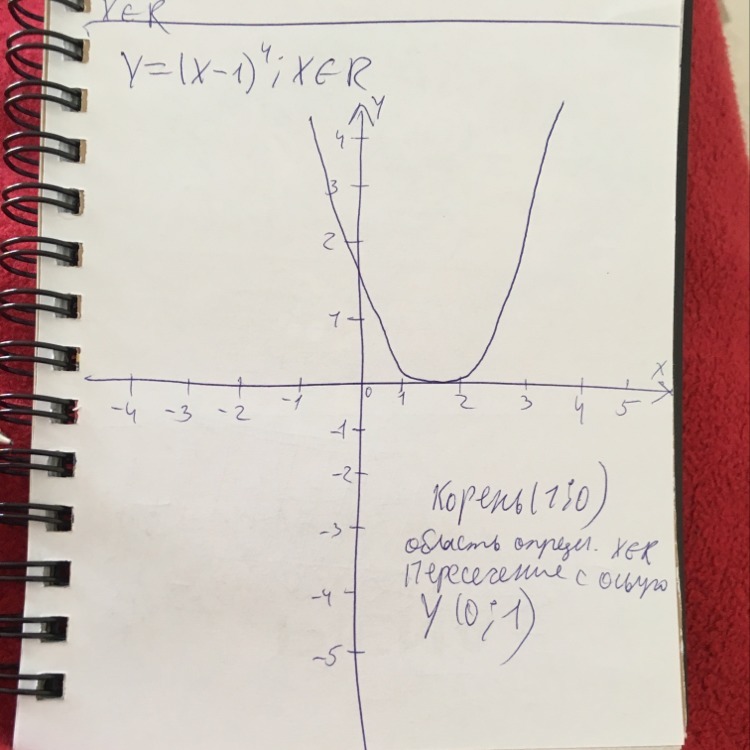 X∈R
Y=(X-1)⁴; X∈R
Y
4
3
2
1
X
-4 -3 -2 -1 0 1 2 3 4 5
-1
-2
-3
-4
-5
Корень(1;0)
область опредл. X∈R
Пересечение с осью
Y (0; 1)